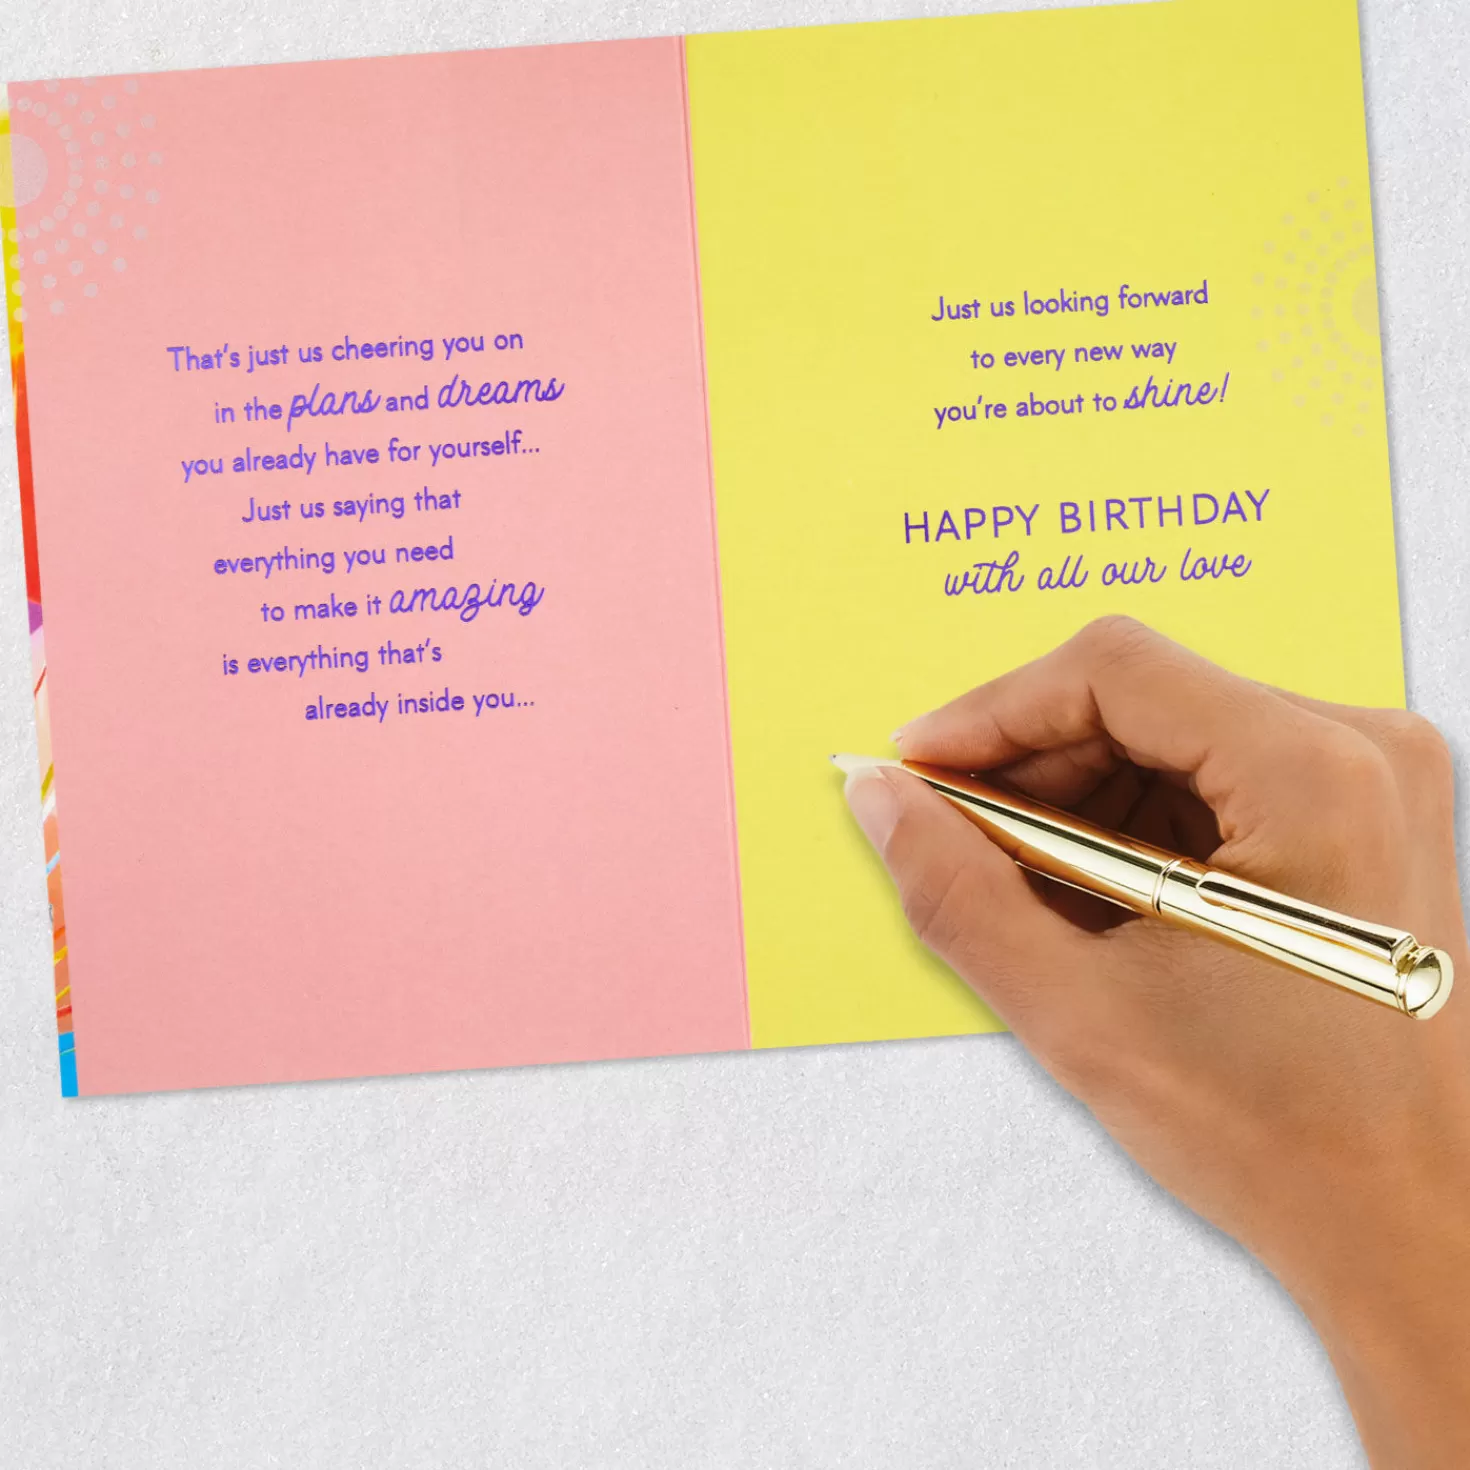 That's just us cheering you on
in the plans and dreams
you already have for yourself...
Just us saying that
everything you need
to make it amazing
is everything that's
already inside you...
Just us looking forward
to every new way
you're about to shine!
HAPPY BIRTHDAY
with all our love